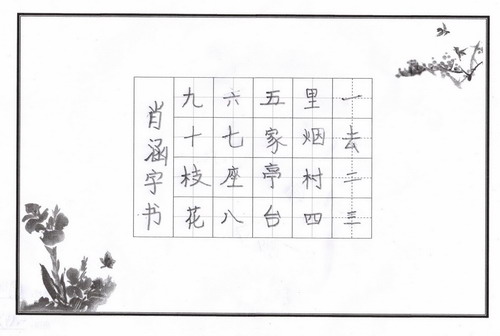 一去二三
里烟村四
五家亭台
六七座八
九十枝花
肖涵字书